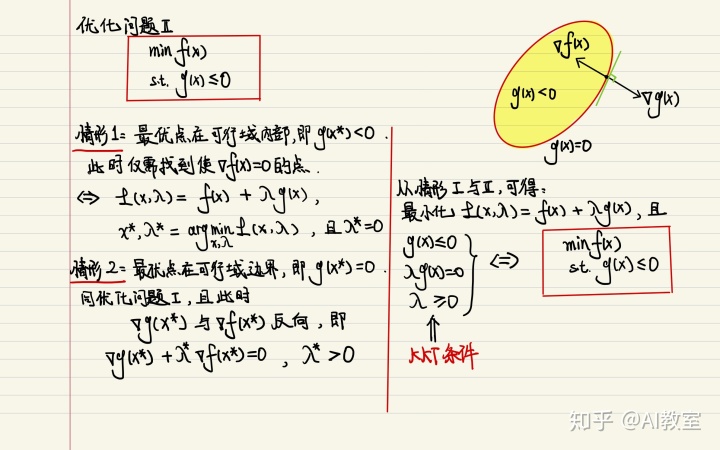 优化问题Ⅱ
min f(x)
s.t. g(x)≤0
情形1: 最优点在可行域内部,即 g(x*)<0.
此时仅需找到使 ∇f(x)=0 的点.
⇔ L(x,λ) = f(x) + λg(x),
x*,λ* = argmin L(x,λ), 且 λ*=0
x,λ
情形2: 最优点在可行域边界,即 g(x*)=0.
同优化问题Ⅰ, 且此时
∇g(x*) 与 ∇f(x*) 反向, 即
∇g(x*) + λ*∇f(x*)=0 , λ*>0
∇f(x)
g(x)<0
∇g(x)
g(x)=0
从情形Ⅰ与Ⅱ,可得:
最小化 L(x,λ) = f(x) + λg(x), 且
g(x)≤0
λg(x)=0
λ≥0
⇔
min f(x)
s.t. g(x)≤0
⇑
KKT条件
知乎 @AI教室